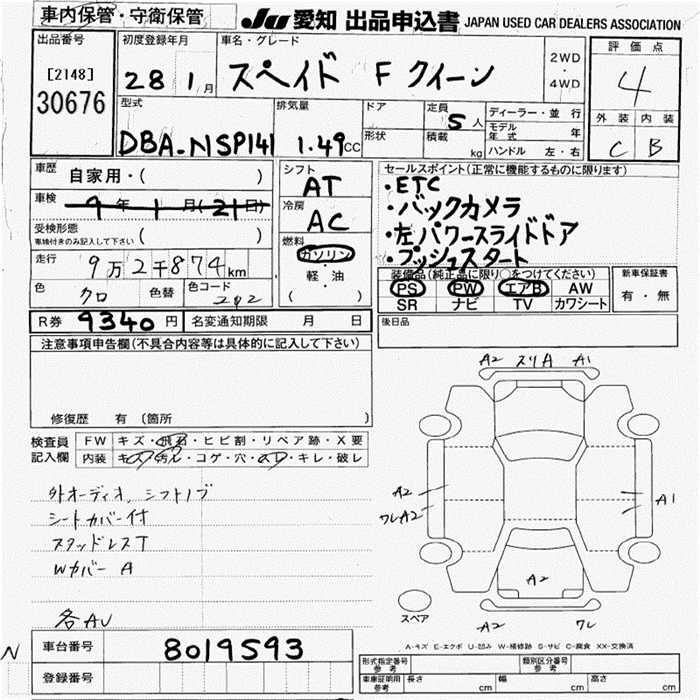 車内保管・守衛保管
JU 愛知 出品申込書 JAPAN USED CAR DEALERS ASSOCIATION
出品番号
[2148]
30676
初度登録年月
28 1月
車名・グレード
スペイド F クイーン
2WD
・
4WD
評価点
4
外装 内装
C B
型式
DBA-NSP141
排気量
1.49CC
ドア
形状
定員 5人
積載 kg
ディーラー・並行
モデル年式 年
ハンドル 左・右
車歴 自家用・( )
車検 9年1月(21日)
受検形態
車検付きのみ記入して下さい ( )
走行 9万2千874km
色 クロ 色替 色コード 202
シフト
AT
冷房
AC
燃料
ガソリン
・
軽・油
( )
セールスポイント(正常に機能するものに限ります)
・ETC
・バックカメラ
・左パワースライドドア
・プッシュスタート
装備品(純正品に限り○をつけてください)
PS PW エアB AW
SR ナビ TV カワシート
新車保証書
有・無
R券 9340円 名変通知期限 月 日
後日品
注意事項申告欄(不具合内容等は具体的に記入して下さい)
修復歴 有 (箇所
検査員記入欄
FW キズ・飛石・ヒビ割・リペア跡・X要
内装 キズ・汚れ・コゲ・穴・スレ・キレ・破レ
外オーディオ、シフトノブ
シートカバー付
スタッドレスT
Wカバー A
各AU
A2 スリA A1
A2
ワレA2
A1
A2
スペア
A2 ワレ
A-キズ E-エクボ U-凹み W-補修跡 S-サビ C-腐食 XX-交換済
N
車台番号 8019593
登録番号
形式指定番号参考 類別区分番号参考
車庫証明用参考 長さ cm 幅 cm 高さ cm